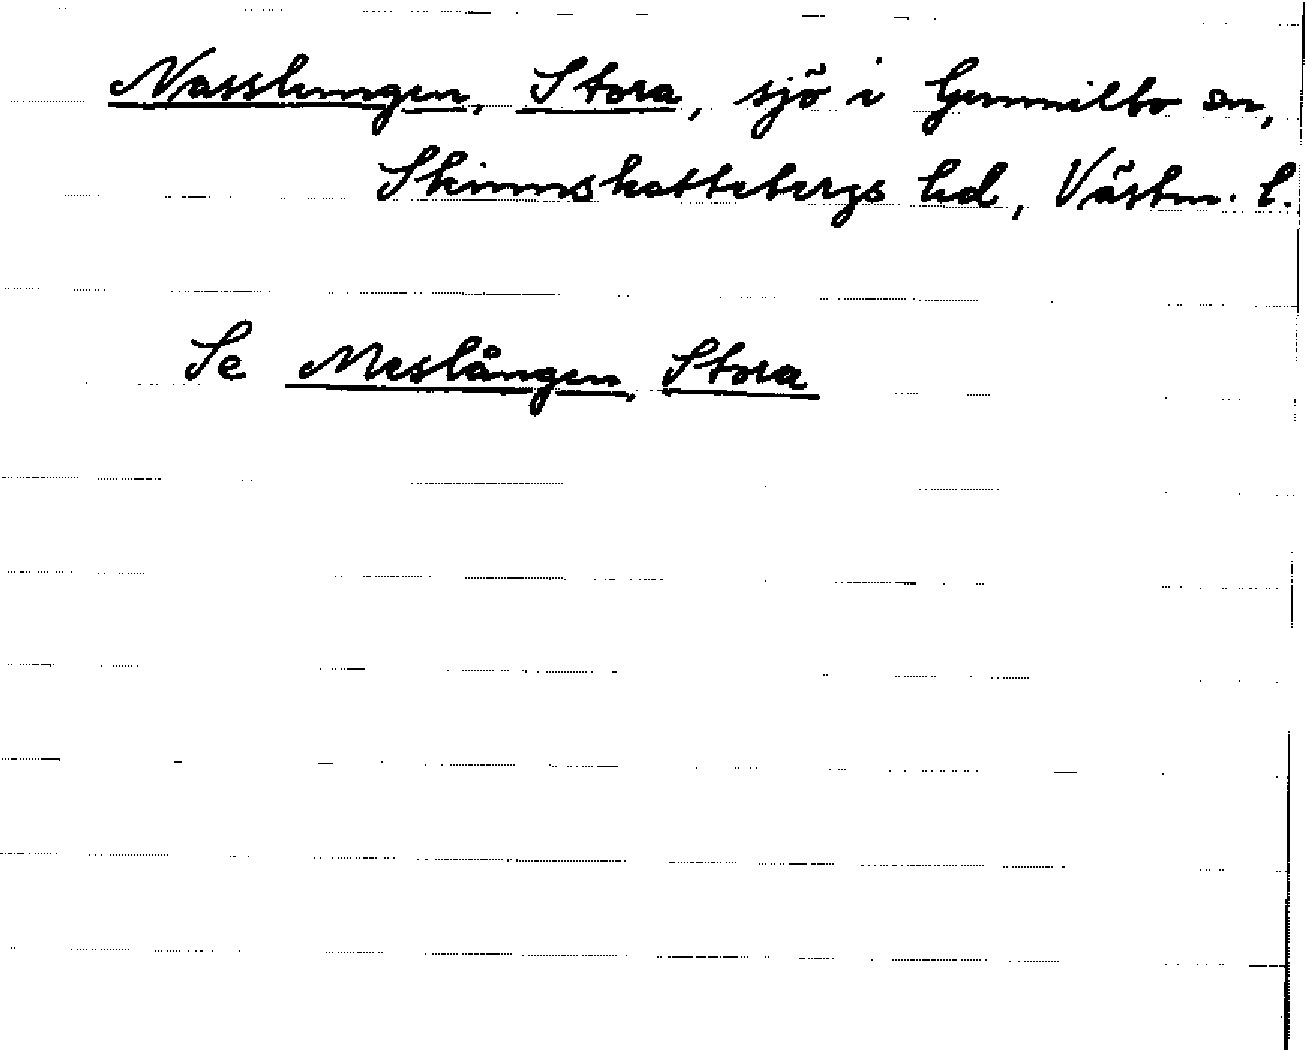 Nasslungen, Stora, sjö i Gunnilbo sn,
Skinnskattebergs hd, Västm. l.
Se Meslången, Stora